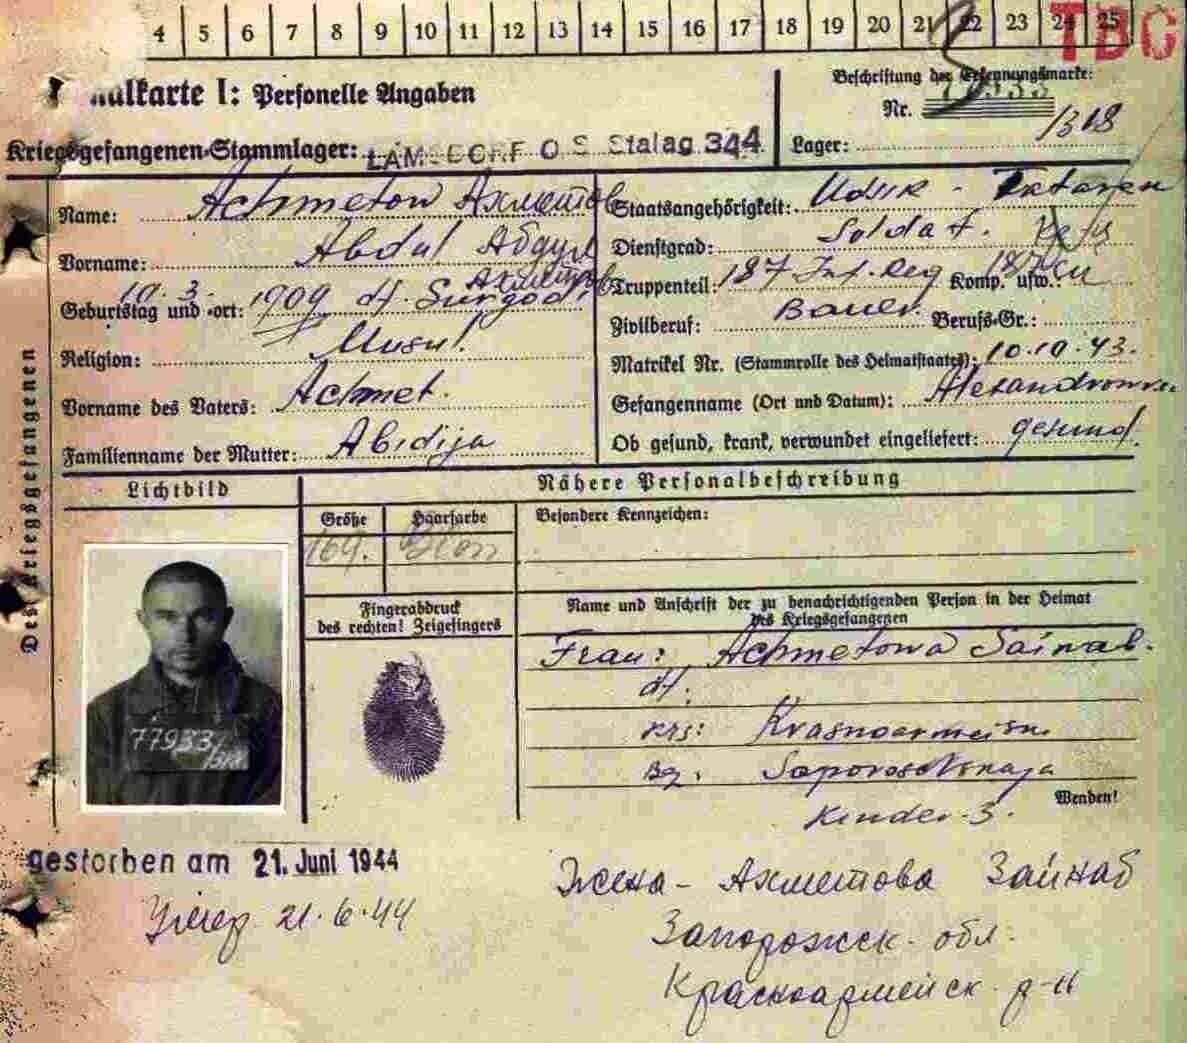 4 5 6 7 8 9 10 11 12 13 14 15 16 17 18 19 20 21 22 23 24 25 TBC
alkarte I: Personelle Angaben
Beschriftung der Erkennungsmarke:
Nr.
Kriegsgefangenen-Stammlager: LAMSDORF O S Stalag 344
Lager: 318
Des Kriegsgefangenen
Name: Achmetow Ахметов
Vorname: Abdul Абдул
Ахметов
Geburtstag und -ort: 10. 3. 1909 df. Surgodi
Religion: Musul.
Vorname des Vaters: Achmet.
Familienname der Mutter: Abidija
Staatsangehörigkeit: Udsk - Tataren
Dienstgrad: Soldat.
Truppenteil: 187 Inf. Reg Komp. usw.:
Zivilberuf: Bauer. Berufs-Gr.:
Matrikel Nr. (Stammrolle des Heimatstaates): 10.10.43.
Gefangenname (Ort und Datum): Alexandrowka
Ob gesund, krank, verwundet eingeliefert: gesund.
Lichtbild
Nähere Personalbeschreibung
Größe Haarfarbe Besondere Kennzeichen:
169.
Fingerabdruck
des rechten! Zeigefingers
Name und Anschrift der zu benachrichtigenden Person in der Heimat
des Kriegsgefangenen
Frau: Achmetowa Sainab.
df.
krs: Krasnoarmeisk
Bg. Saporoshskaja
Wenden!
Kinder 3.
77933/318
gestorben am 21. Juni 1944
Умер 21.6.44
Жена - Ахметова Зайнаб
Запорожск. обл.
Красноармейск. р-н